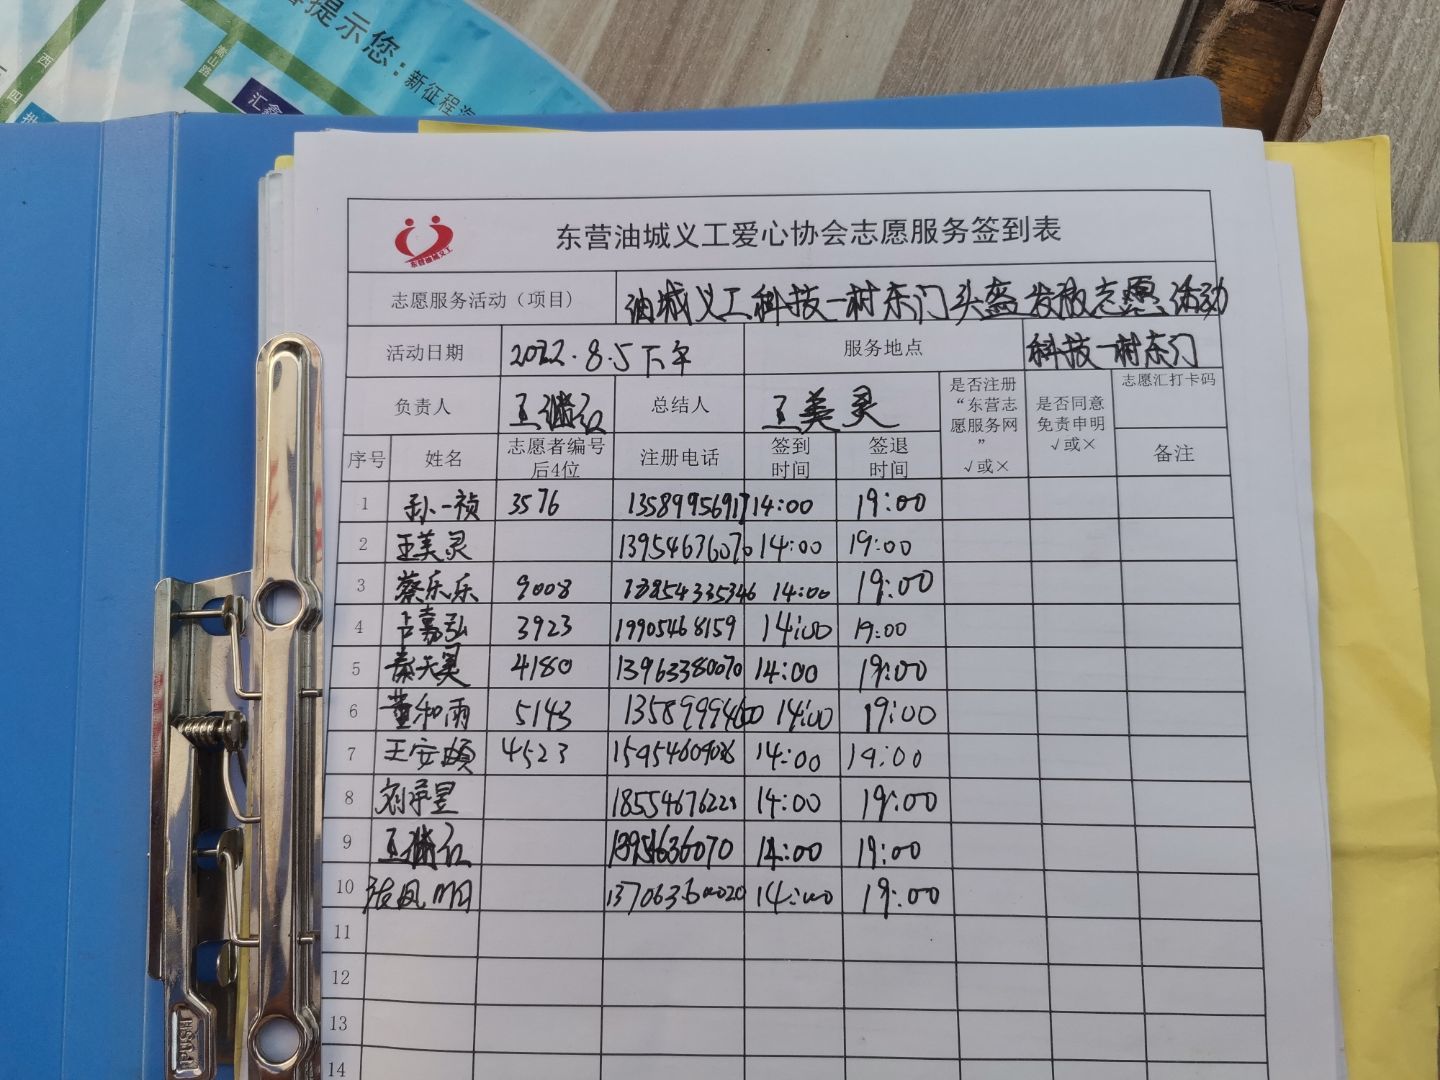 提示您：
新征程
嵩山路
汇鑫
西
四
东营油城义工
东营油城义工爱心协会志愿服务签到表
志愿服务活动（项目） 油城义工科技一村东门头盔发放志愿活动
活动日期 2022.8.5下午 服务地点 科技一村东门
负责人 王继红 总结人 王美灵 是否注册“东营志愿服务网” √或× 是否同意免责申明 √或× 志愿汇打卡码
序号 姓名 志愿者编号后4位 注册电话 签到时间 签退时间 备注
1 孙一祯 3576 13589956917 14:00 19:00
2 王美灵 13954676070 14:00 19:00
3 蔡乐乐 9008 14:00 19:00
4 卢嘉弘 3923 19905468159 14:00 19:00
5 秦天昊 4180 13963380070 14:00 19:00
6 董和雨 5143 14:00 19:00
7 王安颐 4523 15954609036 14:00 19:00
8 刘承昱 14:00 19:00
9 王继红 14:00 19:00
10 张凤明 14:00 19:00
11
12
13
14
PUSH